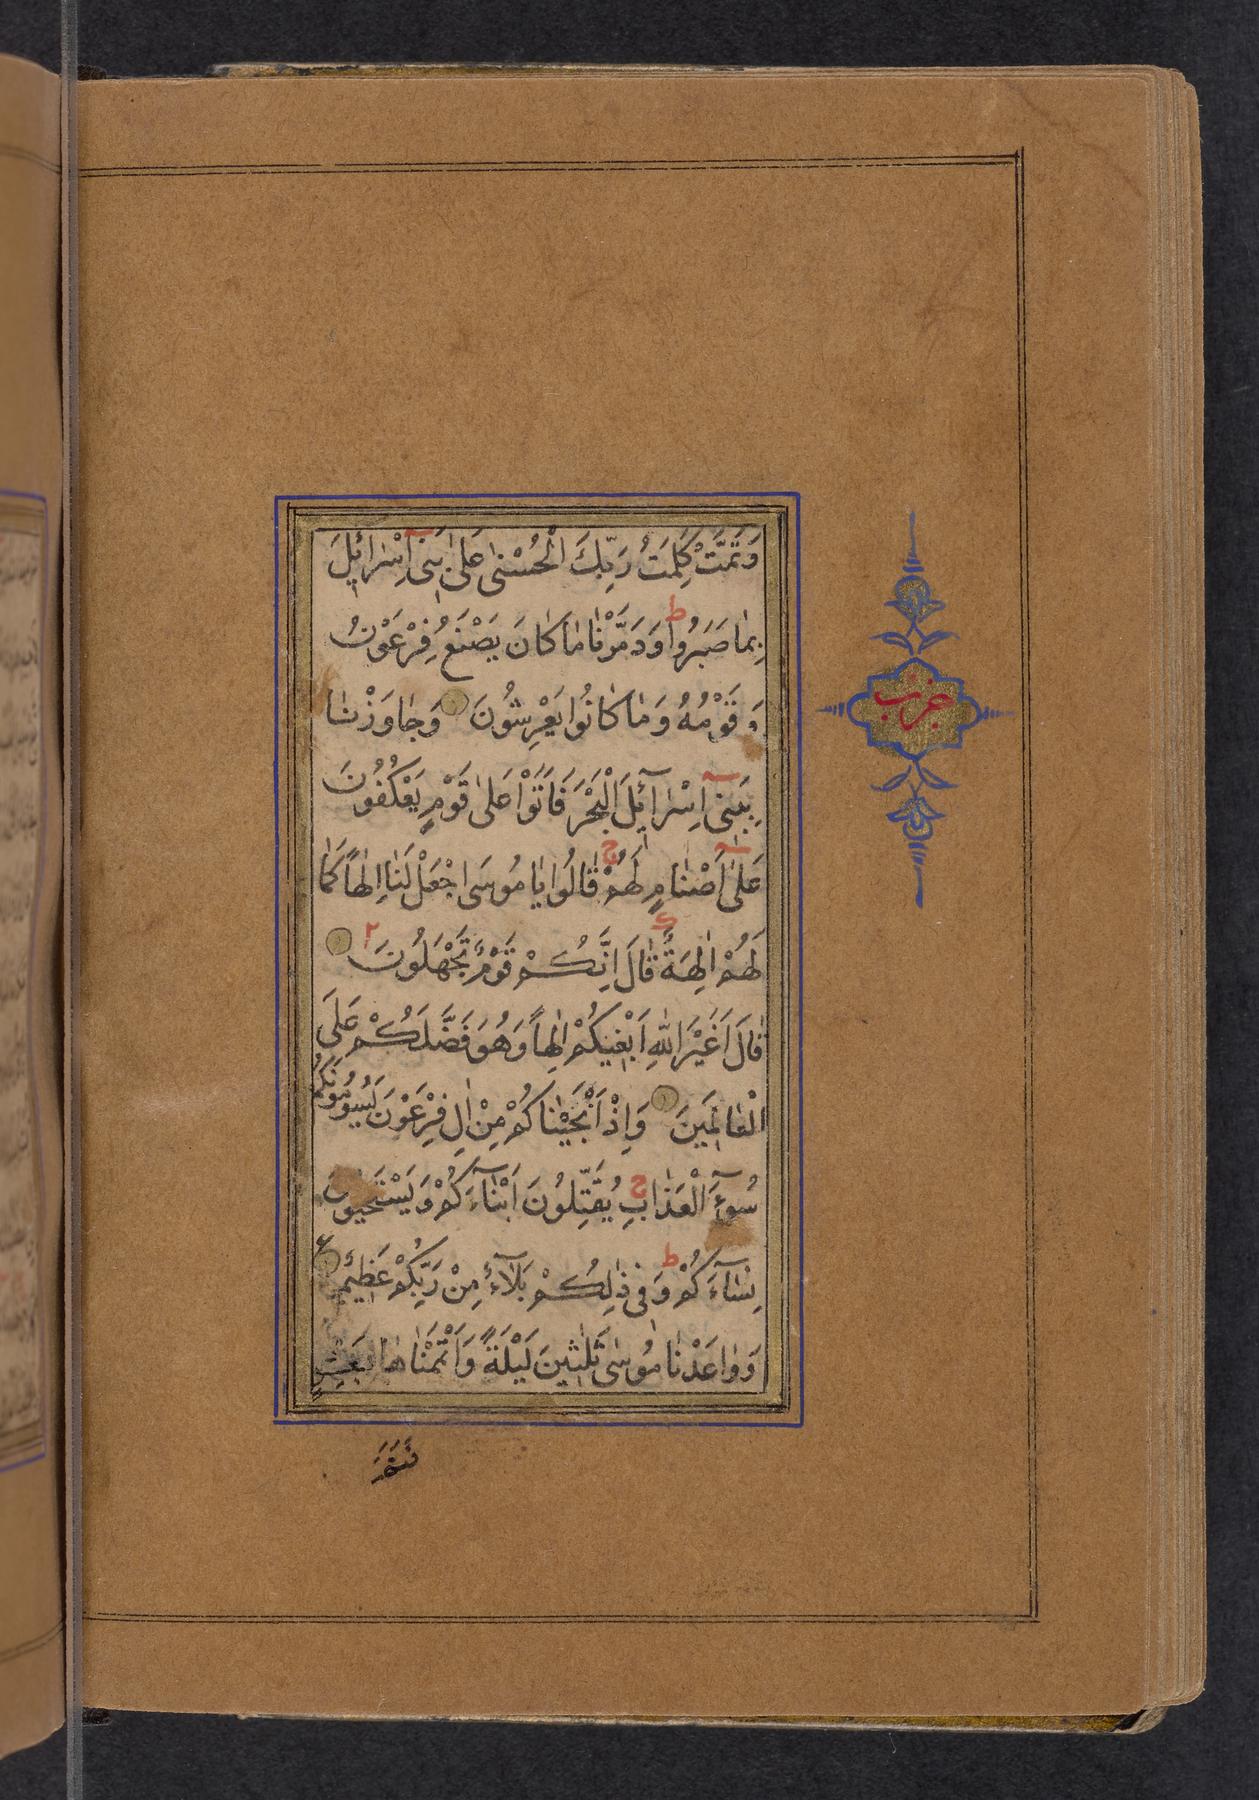 وَتَمَّتْ كَلِمَتُ رَبِّكَ الْحُسْنىٰ عَلىٰ بَنىٓ اِسْرائٖلَ
بِمٰا صَبَرُوا ط وَدَمَّرْنٰا مٰا كٰانَ يَصْنَعُ فِرْعَوْنُ
وَقَوْمُهُ وَمٰا كٰانُوا يَعْرِشُونَ وَجٰاوَزْنٰا
بِبَنىٓ اِسْرٰآئٖلَ الْبَحْرَ فَاَتَوْا عَلىٰ قَوْمٍ يَعْكُفُونَ
عَلىٰٓ اَصْنٰامٍ لَهُمْ ج قٰالُوا يٰا مُوسَى اجْعَلْ لَنٰا اِلٰهاً كَمٰا
لَهُمْ اٰلِهَةٌ قٰالَ اِنَّكُمْ قَوْمٌ تَجْهَلُونَ ٢
قٰالَ اَغَيْرَ اللّٰهِ اَبْغٖيكُمْ اِلٰهاً وَهُوَ فَضَّلَكُمْ عَلَى
الْعٰالَمٖينَ وَاِذْ اَنْجَيْنٰاكُمْ مِنْ اٰلِ فِرْعَوْنَ يَسُومُونَكُمْ
سُوٓءَ الْعَذٰابِ ج يُقَتِّلُونَ اَبْنٰآءَكُمْ وَيَسْتَحْيُونَ
نِسٰآءَكُمْ ط وَفٖى ذٰلِكُمْ بَلٰٓاءٌ مِنْ رَبِّكُمْ عَظٖيمٌ ع
وَوٰاعَدْنٰا مُوسٰى ثَلٰثٖينَ لَيْلَةً وَاَتْمَمْنٰاهٰا بِعَشْرٍ
فَتَمَّ
حزب